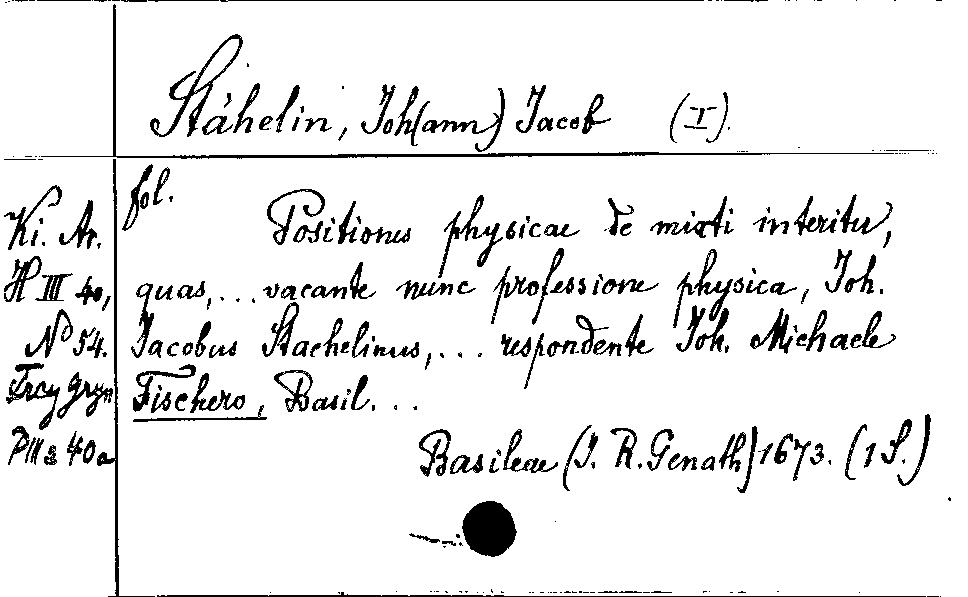 Stähelin, Joh(ann) Jacob (I).
fol.
Ki. Ar.
H III 40,
No 54.
Frey Gryn
Positiones physicae de mixti interitu,
quas,... vacante nunc professione physica, Joh.
Jacobus Staehelinus,... respondente Joh. Michaele
Fischero, Basil...
Basileae (J. R. Genath) 1673. (1 S.)